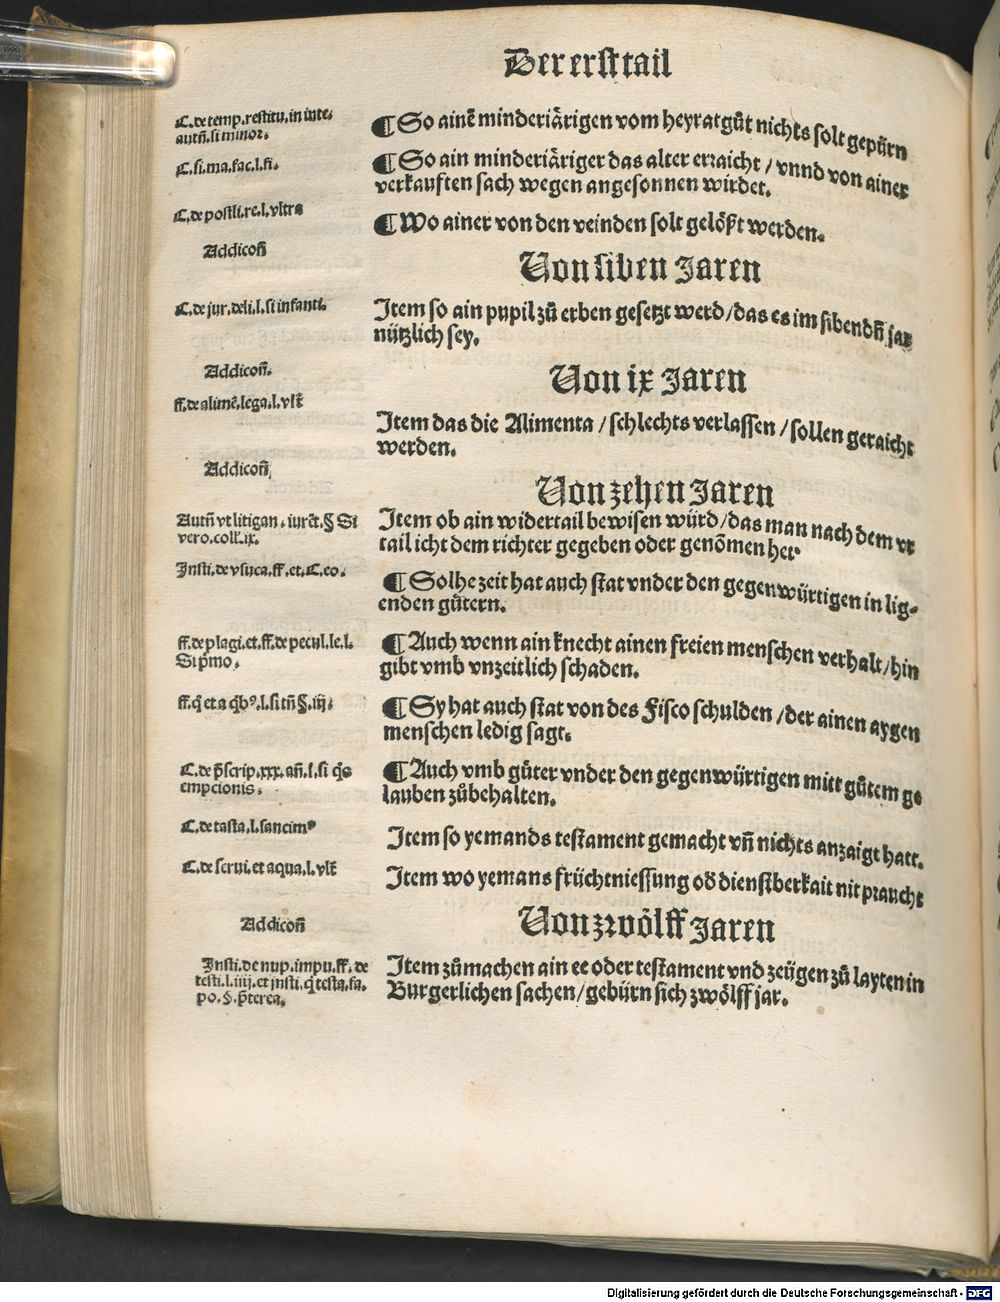 Der erst tail
C. de temp. restitu. in inte.
autñ. si minor.
¶ So ainē minderiärigen vom heyratgůt nichts solt gepürn
C. si. ma. fac. l. fi.
¶ So ain minderiäriger das alter erraicht / vnnd von ainer
verkauften sach wegen angesonnen wirdet.
C. de postli. re. l. vltra
¶ Wo ainer von den veinden solt gelößt werden.
Addicoñ
Von siben Jaren
C. de jur. deli. l. si infanti.
Item so ain pupil zů erben gesetzt werd / das es im sibendñ jar
nützlich sey.
Addicoñ.
Von ix Jaren
ff. de alimē. lega. l. vlt̄
Item das die Alimenta / schlechts verlassen / sollen geraicht
werden.
Addicoñ
Von zehen Jaren
Autñ vt litigan. iurēt. § Si
vero. coll. ix.
Item ob ain widertail bewisen würd / das man nach dem vr
tail icht dem richter gegeben oder genōmen het.
Insti. de vsuca. ff. et. C. eo.
¶ Solhe zeit hat auch stat vnder den gegenwürtigen in lig-
enden gůtern.
ff. de plagi. et. ff. de pecul. le. l.
Si p̄mo.
¶ Auch wenn ain knecht ainen freien menschen verhalt / hin
gibt vmb vnzeitlich schaden.
ff. q̄ et a q̄bꝰ. l. si tñ §. iij.
¶ Sy hat auch stat von des Fisco schulden / der ainen aygen
menschen ledig sagt.
C. de p̄scrip. xxx. añ. l. si q̄s
empcionis.
¶ Auch vmb gůter vnder den gegenwürtigen mitt gůtem ge
lauben zůbehalten.
C. de tasta. l. sancimꝰ
Item so yemands testament gemacht vñ nichts anzaigt hatt.
C. de serui. et aqua. l. vlt̄
Item wo yemans früchtniessung od̄ dienstberkait nit praucht
Addicoñ
Von zwölff Jaren
Insti. de nup. impu. ff. de
testi. l. iiij. et insti. q̄ testa. fa.
po. §. p̄terea.
Item zůmachen ain ee oder testament vnd zeügen zů layten in
Burgerlichen sachen / gebürn sich zwölff jar.
Digitalisierung gefördert durch die Deutsche Forschungsgemeinschaft - DFG